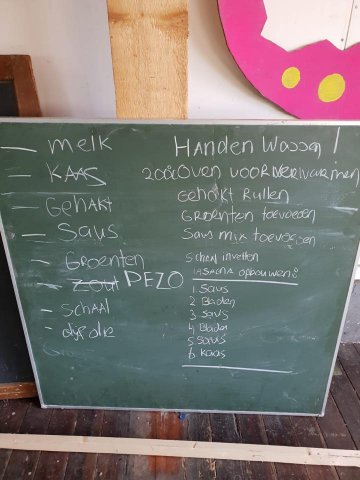 — melk
— KAAS
— GEHAKT
— SAUS
— GROENTEN
— ZOUT PEZO
— SCHAAL
— olijfolie
HANDEN WASSEN!
200°C OVEN VOORVERWARMEN
GEHAKT RULLEN
GROENTEN TOEVOEGEN
SAUS MIX TOEVOEGEN
SCHAAL INVETTEN
LASAGNA OPBOUWEN:
1. SAUS
2 BLADEN
3 SAUS
4 BLADEN
5 SAUS
6 KAAS